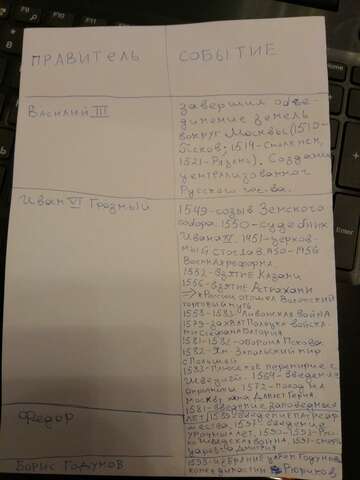 ПРАВИТЕЛЬ
СОБЫТИЕ
Василий III
завершил объе-
динение земель
вокруг Москвы (1510-
Псков; 1514-Смоленск,
1521-Рязань). Создание
централизованного
Русского гос-ва.
Иван VI Грозный
1549-созыв Земского
собора. 1550-судебник
Ивана IV. 1951-церков-
ный стоглав. 1550-1556
Военная реформа
1552-взятие Казани
1556-взятие Астрахани
к России отошел Волжский
торговый путь
1558-1583 Ливонская война
1579-захват Полоцка войска-
ми Стефана Батория
1581-1582-оборона Пскова
1582-Ям Запольский мир
с Польшей
1583-Плюсское перемирие с
Швецией. 1559-Введение
опричнины 1572-Поход на
Москву хана Давлет Гирея
1581-Введение заповедных
лет
Федор
1589-введение патриар-
шества. 1597-введение
урочных лет. 1590-1593-Рус-
ко-шведская война. 1591-смерть
царевича Дмитрия
Борис Годунов
1598-избрание царем Годунова
конец династии Рюриков